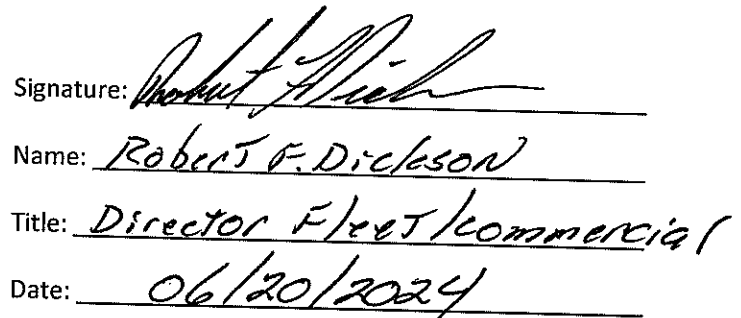 Signature: Robert F. Dick
Name: Robert F. Dickson
Title: Director Fleet/Commercial
Date: 06/20/2024